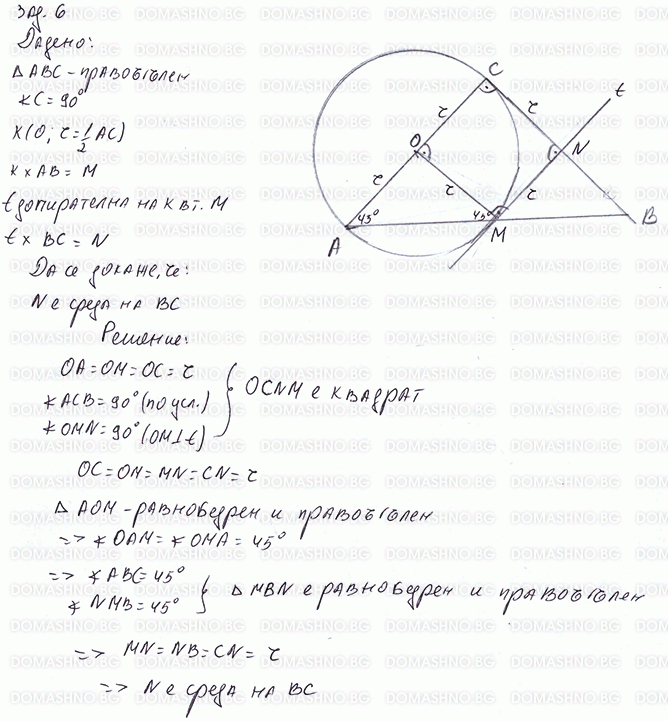 Зад. 6
Дадено:
△ABC - правоъгълен
∢C = 90°
K(O; r = 1/2 AC)
K x AB = M
t допирателна на K в т. M
t x BC = N
Да се докаже, че:
N е среда на BC
Решение:
OA = OM = OC = r
∢ACB = 90° (по усл.)
∢OMN = 90° (OM ⊥ t)
} OCNM е квадрат
OC = OM = MN = CN = r
△ AOM - равнобедрен и правоъгълен
=> ∢OAM = ∢OMA = 45°
=> ∢ABC = 45°
∢NMB = 45°
} △ MBN е равнобедрен и правоъгълен
=> MN = NB = CN = r
=> N е среда на BC
C
t
r
r
O
N
r
r
r
45°
45°
A
M
B
DOMASHNO.BG